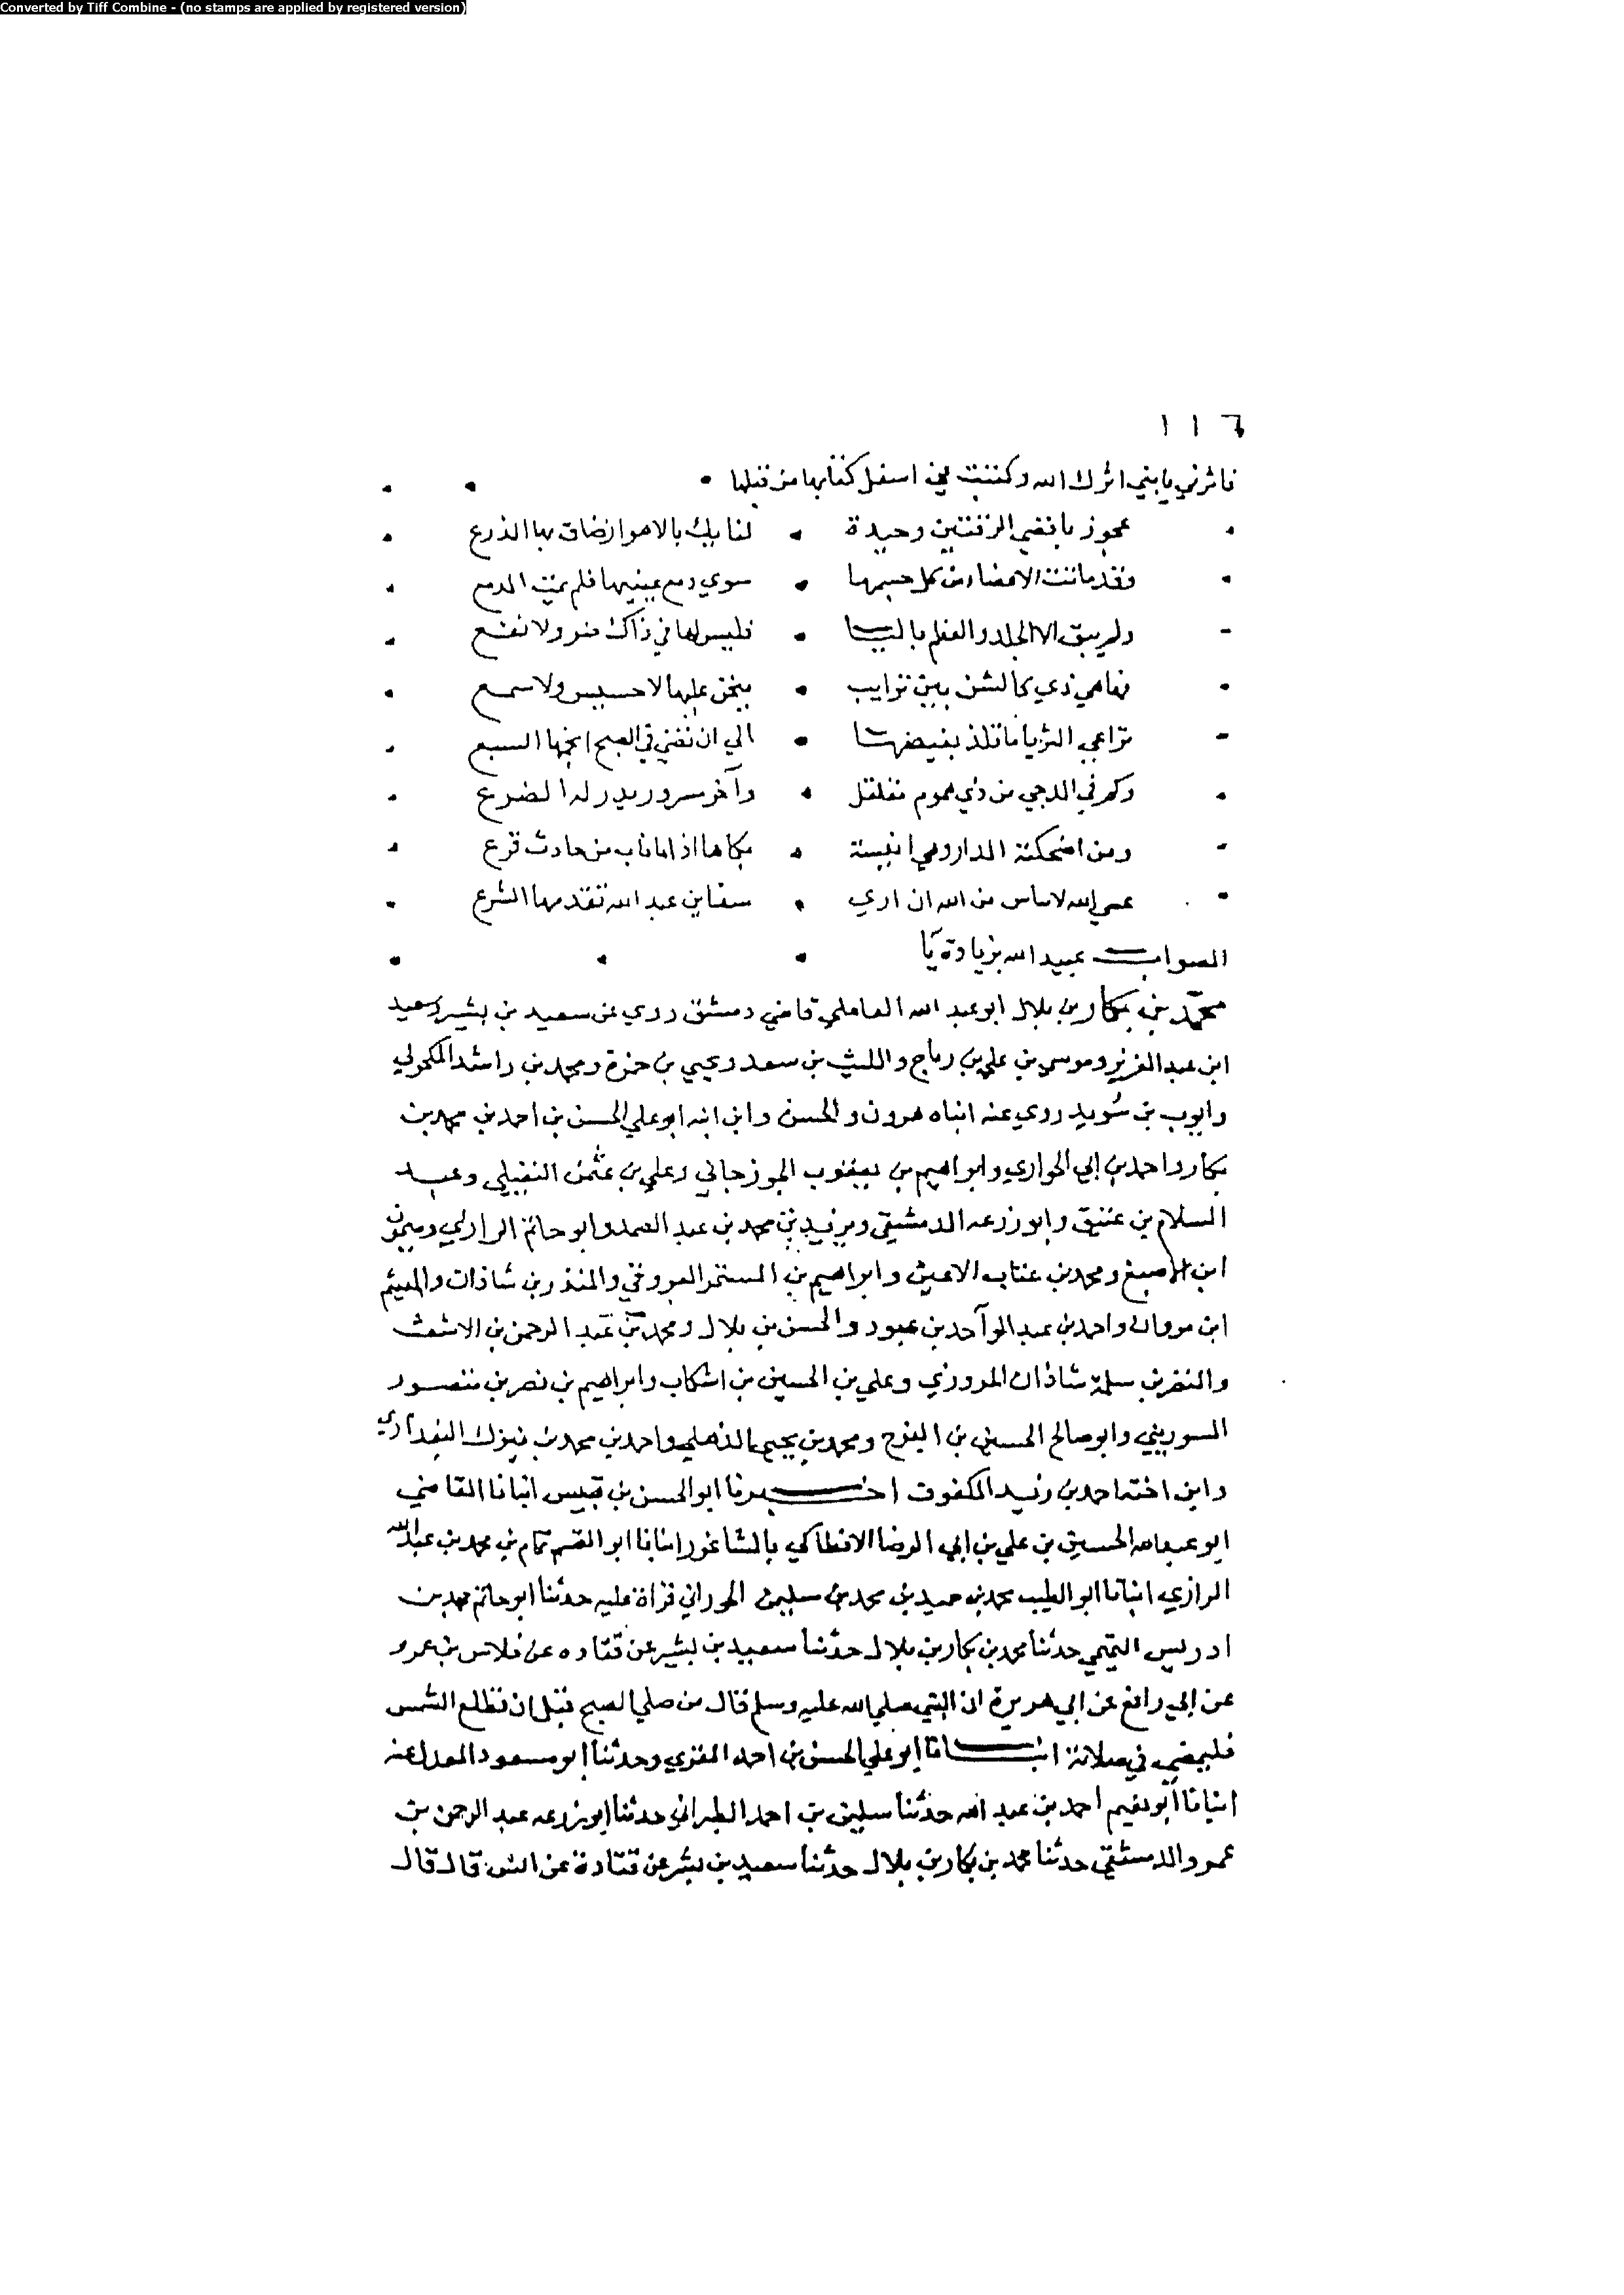 Converted by Tiff Combine - (no stamps are applied by registered version)
١١٦
فاثرني يابني اثرك الله وكتبت في اسفل كتابها من قبلها
عجوز باقصى الرقتين وحيدة لنا بك بالاهواز ضاق بها الذرع
وقد ماتت الاعضا من كل جسمها سوي دمع عينيها فلم يمت الدمع
ولم يبق الا الجلد والعظم باليا فليس لها في ذاك ضر ولا نفع
فها هي ذي كالشن بين ترايب يخن عليها لا حسيس ولا سمع
تراعي الثريا ما تلذ بغيضها الي ان تضي في الصبح انجمها السبع
وكم في الدجي من ذي هموم مقلقل وآخر مسرور يدر له الضرع
ومن اضحكته الدار وهي انيسة بكاها اذا ما ناب من حادث قرع
عسي الله لا ياس من الله ان اري سفاين عبد الله تقدمها الشرع
الصواب عبيد الله بزيادة يا
محمد بن بكار بن بلال ابو عبد الله العاملي قاضي دمشق روي عن سعيد بن بشير وسعيد
ابن عبد العزيز وموسي بن علي بن رباح والليث بن سعد ويحيي بن حمزة ومحمد بن راشد المكحولي
وايوب بن سُويد روي عنه ابناه هرون والحسن وابن ابنه ابو علي الحسن بن احمد بن محمد بن
بكار واحمد بن ابي الحواري وابراهيم بن يعقوب الجوزجاني وعلي بن عثمن النفيلي وعبد
السلام بن عتيق وابو زرعه الدمشقي ويزيد بن محمد بن عبد الصمد وابو حاتم الرازي وميمون
ابن الاصبغ ومحمد بن عتاب الاعين وابراهيم بن المستمر العروقي والمنذر بن شاذان والهيثم
ابن مروان واحمد بن عبد الوآحد بن عبود والحسن بن بلال ومحمد بن عبد الرحمن بن الاشعث
والنضر بن سلمة شاذان المروزي وعلي بن الحسين بن اشكاب وابراهيم بن نصر بن منصور
السوريني وابو صالح الحسين بن الفرج ومحمد بن يحيى الذهلي واحمد بن محمد بن نيزك البغدادي
وابن اخته احمد بن زيد المكفوف اخبرنا ابو الحسن بن قبيس انبانا القاضي
ابو عبد الله الحسين بن علي بن ابي الرضا الانطاكي بالشاغور انبانا ابو القسم تمام بن محمد بن عبد الله
الرازي انبانا ابو الطيب محمد بن حميد بن محمد بن سليمن الحوراني قراة عليه حدثنا ابو حاتم محمد بن
ادريس التميمي حدثنا محمد بن بكار بن بلال حدثنا سعيد بن بشير عن قتاده عن خلاس بن عمرو
عن ابي رافع عن ابي هريرة ان النبي صلي الله عليه وسلم قال من صلي الصبح قبل ان تطلع الشمس
فليمضي في صلاته انبانا ابو علي الحسن بن احمد المقري وحدثنا ابو مسعود المعدل عنه
انبانا ابو نعيم احمد بن عبد الله حدثنا سليمن بن احمد الطبراني حدثنا ابو زرعه عبد الرحمن بن
عمرو الدمشقي حدثنا محمد بن بكار بن بلال حدثنا سعيد بن بشير عن قتادة عن انس قال قال